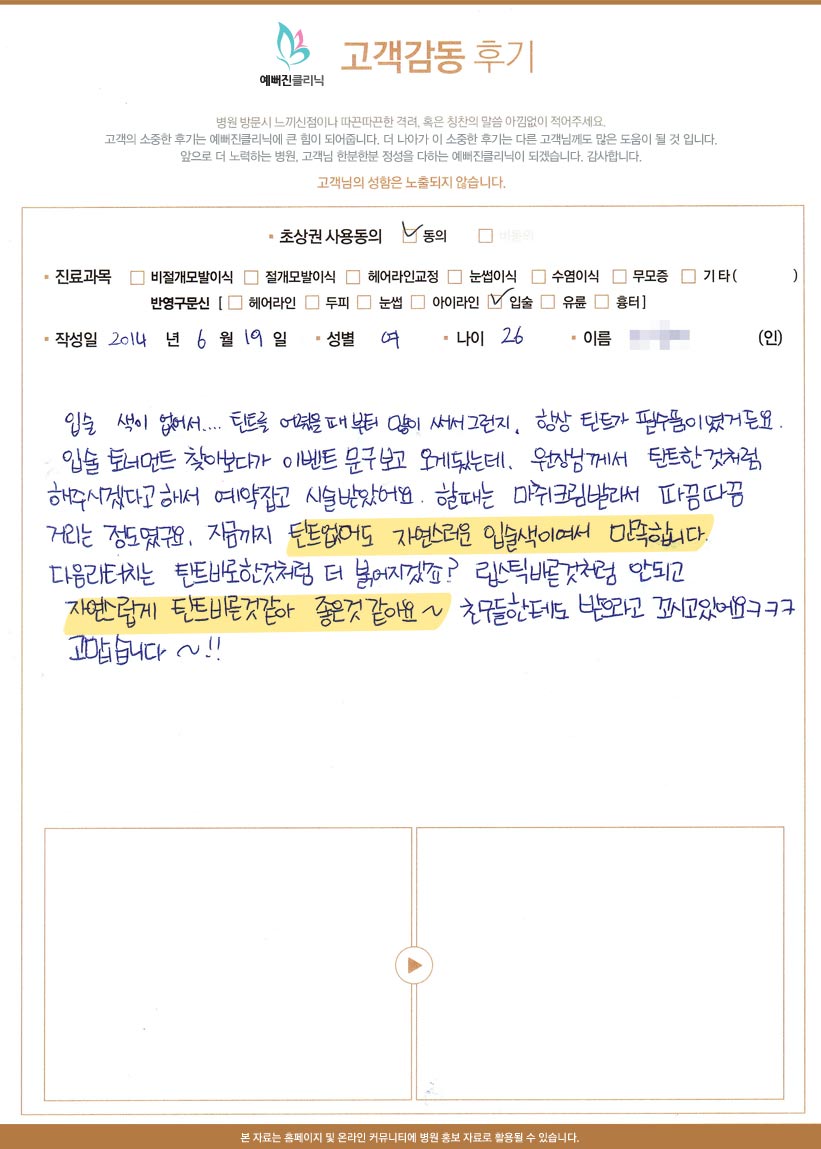 예뻐진클리닉
고객감동 후기
병원 방문시 느끼신점이나 따끈따끈한 격려, 혹은 칭찬의 말씀 아낌없이 적어주세요.
고객의 소중한 후기는 예뻐진클리닉에 큰 힘이 되어줍니다. 더 나아가 이 소중한 후기는 다른 고객님께도 많은 도움이 될 것 입니다.
앞으로 더 노력하는 병원, 고객님 한분한분 정성을 다하는 예뻐진클리닉이 되겠습니다. 감사합니다.
고객님의 성함은 노출되지 않습니다.
• 초상권 사용동의 동의 비동의
• 진료과목 비절개모발이식 절개모발이식 헤어라인교정 눈썹이식 수염이식 무모증 기타( )
반영구문신 [ 헤어라인 두피 눈썹 아이라인 입술 유륜 흉터 ]
• 작성일 2014 년 6 월 19 일 • 성별 여 • 나이 26 • 이름 (인)
입술 색이 없어서.... 틴트를 어렸을때부터 많이 써서그런지, 항상 틴트가 필수품이였거든요.
입술 토너먼트 찾아보다가 이벤트 문구보고 오게됬는데, 원장님께서 틴트한것처럼
해주시겠다고해서 예약잡고 시술받았어요. 할때는 마취크림발라서 따끔따끔
거리는 정도였구요, 지금까지 틴트없어도 자연스러운 입술색이여서 만족합니다.
다음리터치는 틴트바로한것처럼 더 붉어지겠죠? 립스틱바른것처럼 안되고
자연스럽게 틴트바른것같아 좋은것 같아요~ 친구들한테도 받으라고 꼬시고있어요ㅋㅋㅋ
고맙습니다 ~!!
본 자료는 홈페이지 및 온라인 커뮤니티에 병원 홍보 자료로 활용될 수 있습니다.